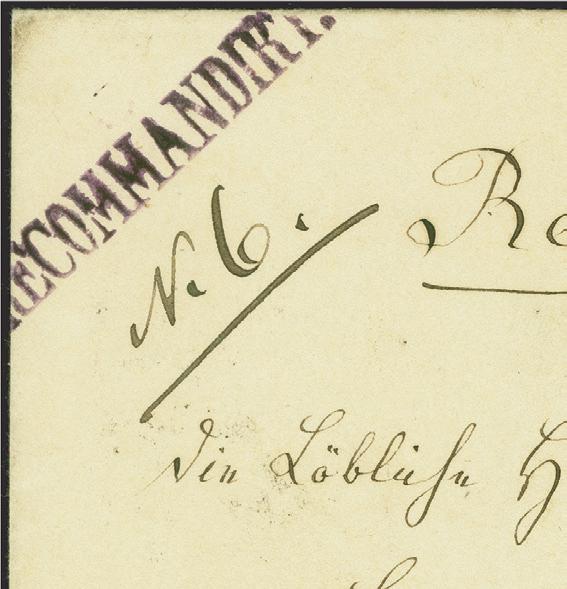 RECOMMANDIRT.
N. 6.
Die Löbliche